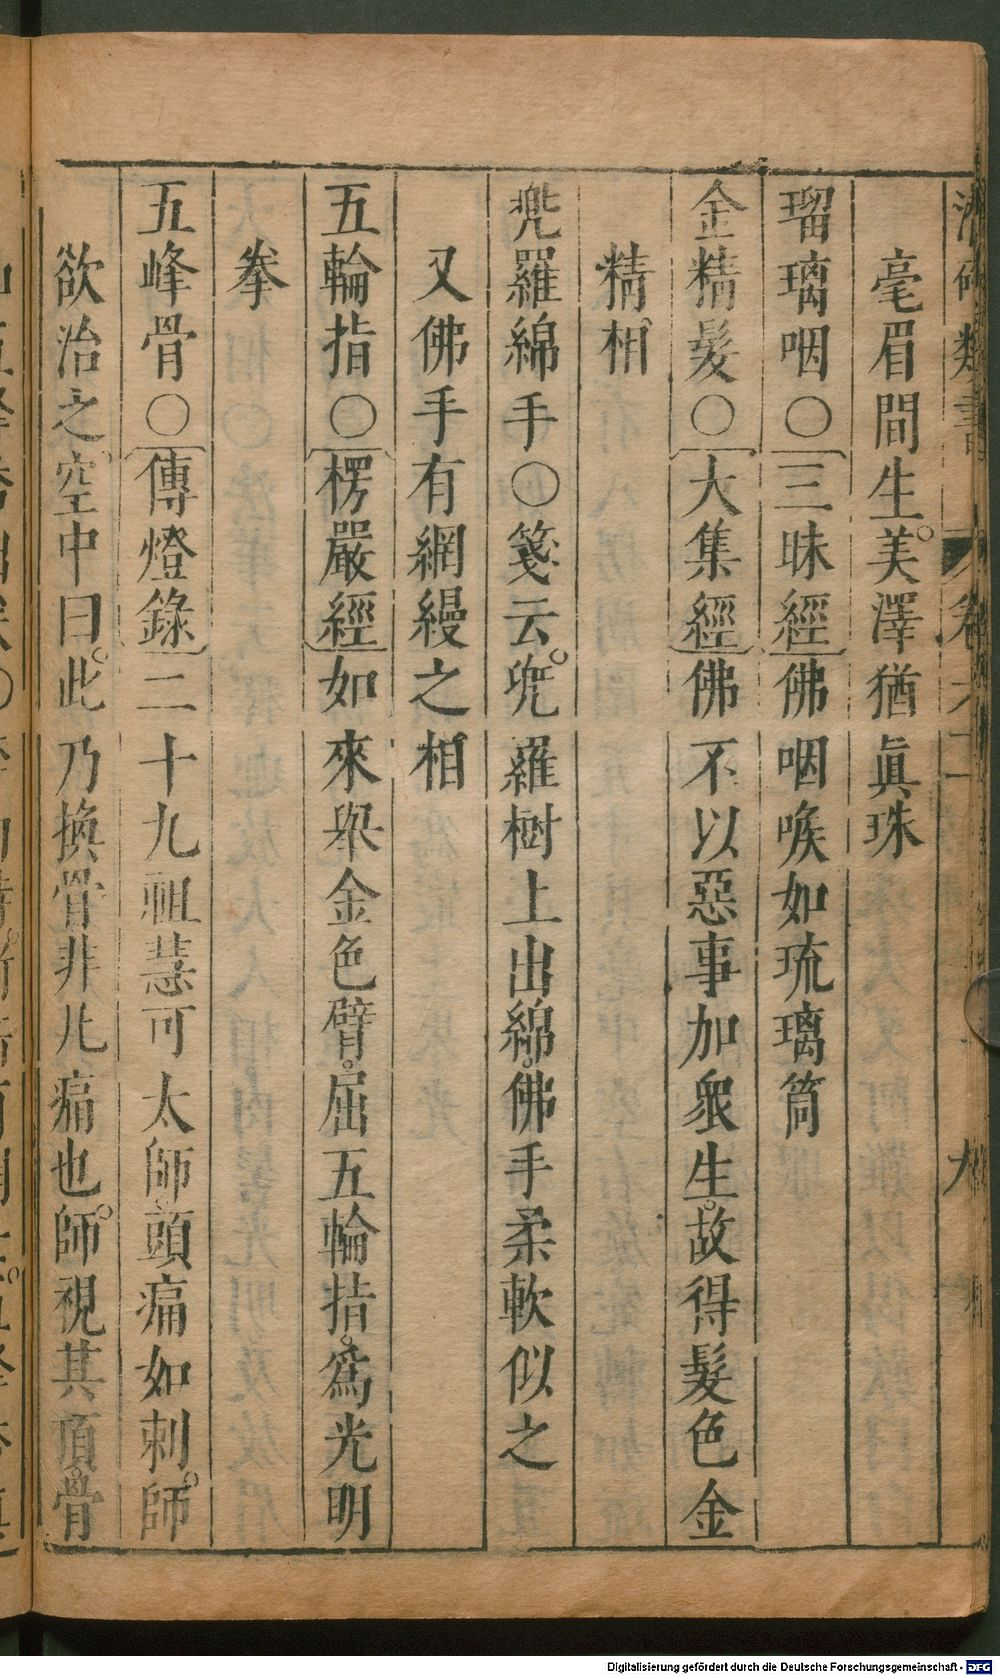 毫眉間生。美澤猶眞珠
瑠璃咽○三昧經佛咽喉如琉璃筒
金精髮○大集經佛不以惡事加衆生。故得髮色金
精。相
兜羅綿手○箋云。兜羅樹上出綿。佛手柔軟似之
又佛手有網縵之相
五輪指○楞嚴經如來舉金色臂。屈五輪指。爲光明
拳
五峰骨○傳燈錄二十九祖慧可太師。頭痛如刺。師
欲治之。空中曰。此乃換骨非凡痛也。師視其頂。骨
Digitalisierung gefördert durch die Deutsche Forschungsgemeinschaft - DFG